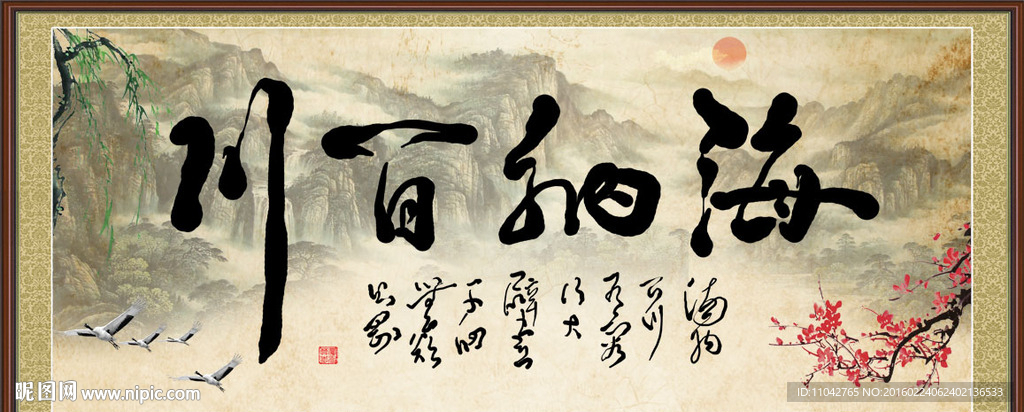 海納百川
海納
百川
有容
乃大
壁立
千仞
無欲
則剛
昵图网 www.nipic.com
ID:11042765 NO:20160224062402136533